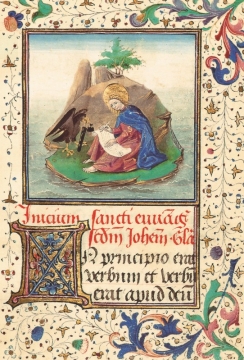 Inicium sancti euuāg̃
scdm̃ Johem̃ Gła
IN principio erat
verbum et verbū
erat apud deū